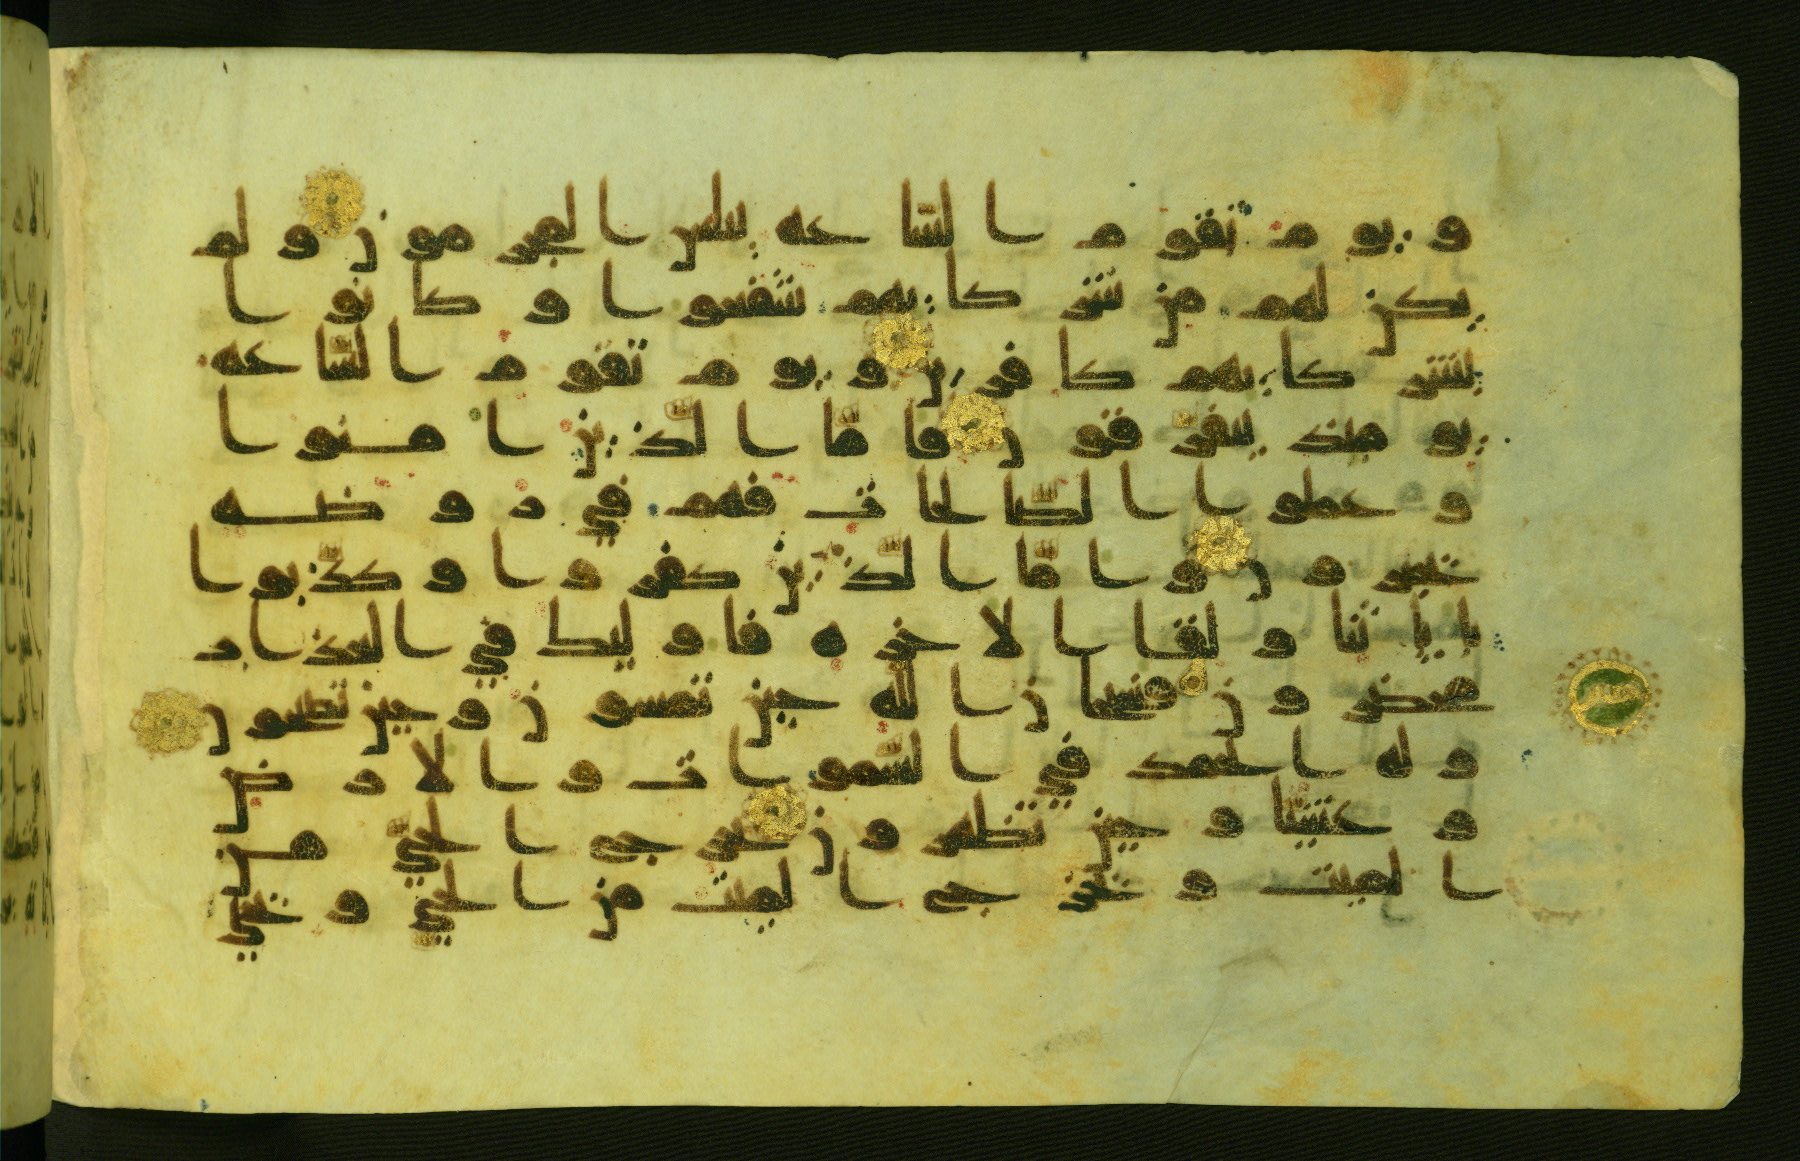 ويوم تقوم الساعه يبلس المجرمون ولم
يكن لهم من شركايهم شفعوا وكانوا
بشركايهم كافرين ويوم تقوم الساعه
يوميذ يتفرّقون فامّا الّذين امنوا
وعملوا الصّالحات فهم في روضه
يحبرون وامّا الّذين كفروا وكذّبوا
باياتنا ولقا الاخره فاوليك في العذاب
محضرون فسبحان اللّه حين تمسون وحين تصبحون
وله الحمد في السّموات والارض
وعشيّا وحين تظهرون يخرج الحيّ من
الميّت ويخرج الميّت من الحيّ ويحيي